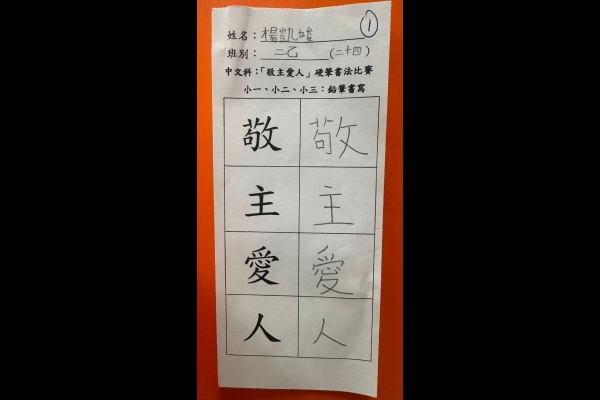 1
姓名：楊凱竣
班別：二乙（二十四）
中文科：「敬主愛人」硬筆書法比賽
小一、小二、小三：鉛筆書寫
敬 敬
主 主
愛 愛
人 人